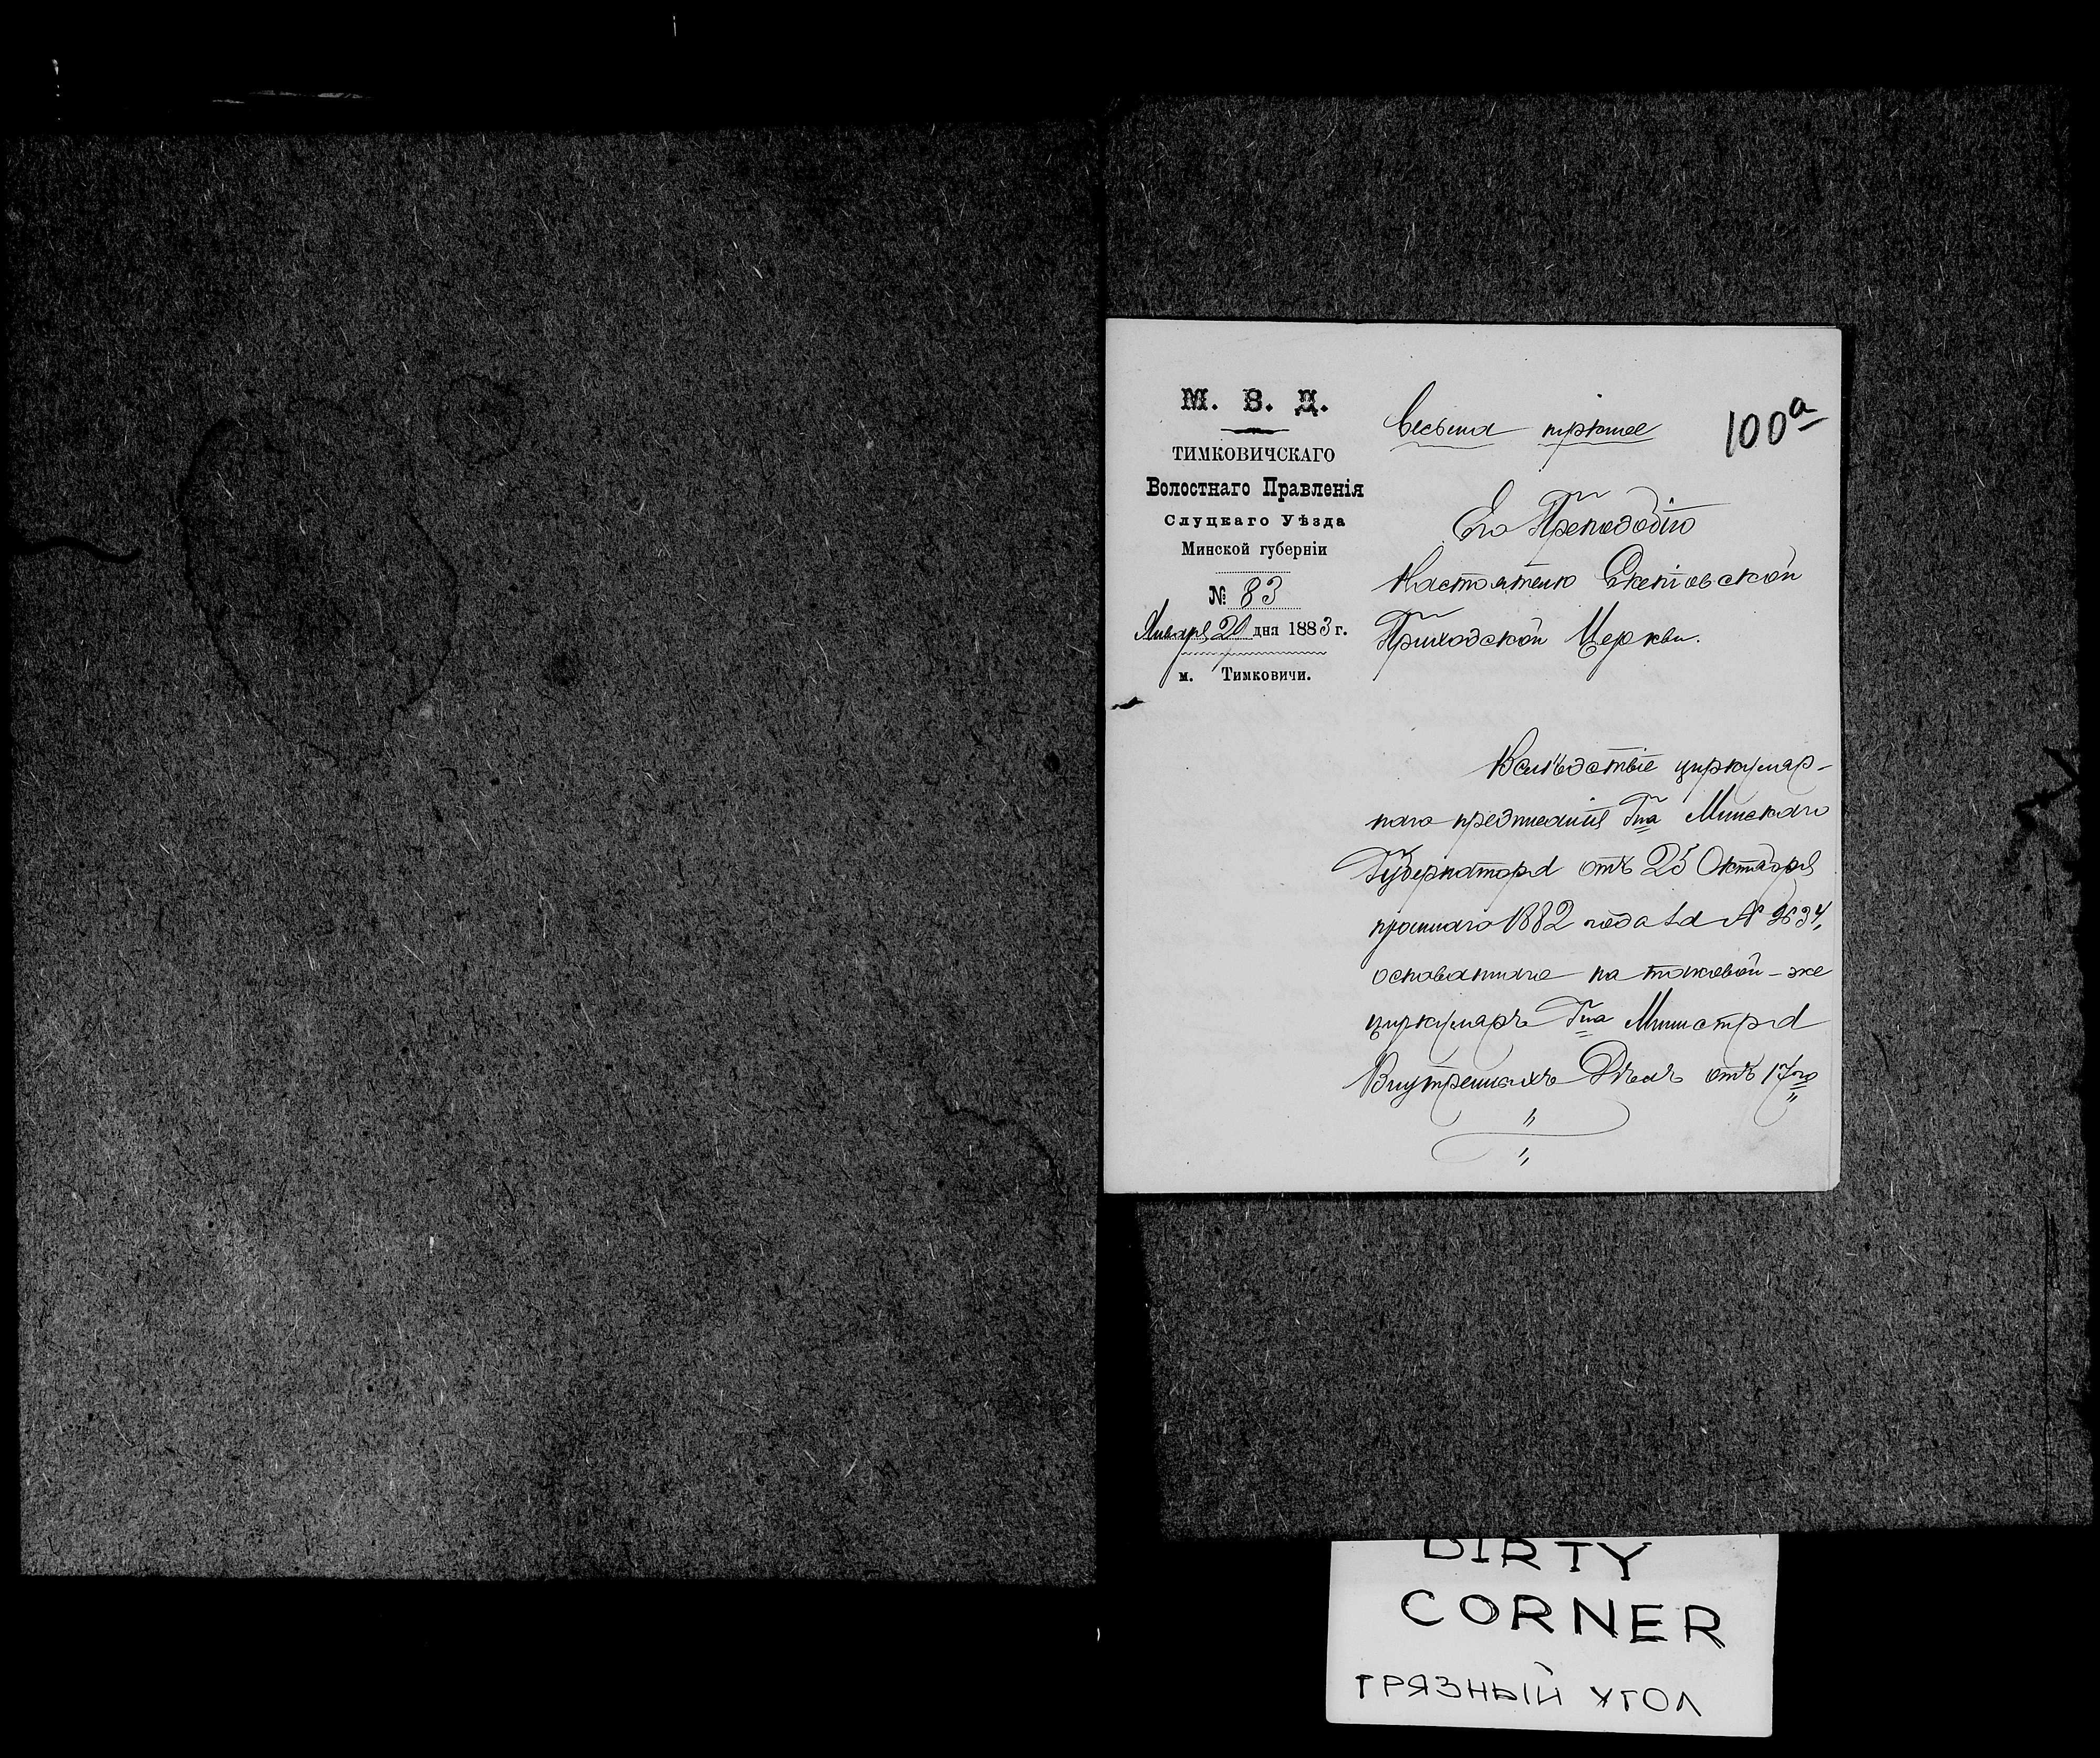 М. В. Д.
ТИМКОВИЧСКАГО
Волостнаго Правленія
Слуцкаго Уѣзда
Минской губерніи
№ 83
Января 20 дня 1883 г.
м. Тимковичи.
Весьма нужное
100а
Его Преподобію
Настоятелю
Приходской Церкви.
Вслѣдствіе циркуляр-
наго предписанія Гна Минскаго
Губернатора отъ 25 Октября
прошлаго 1882 года за №
основаннаго на таковой-же
циркуляръ Гна Министра
Внутреннихъ Дѣлъ отъ 17го
DIRTY
CORNER
ГРЯЗНЫЙ УГОЛ